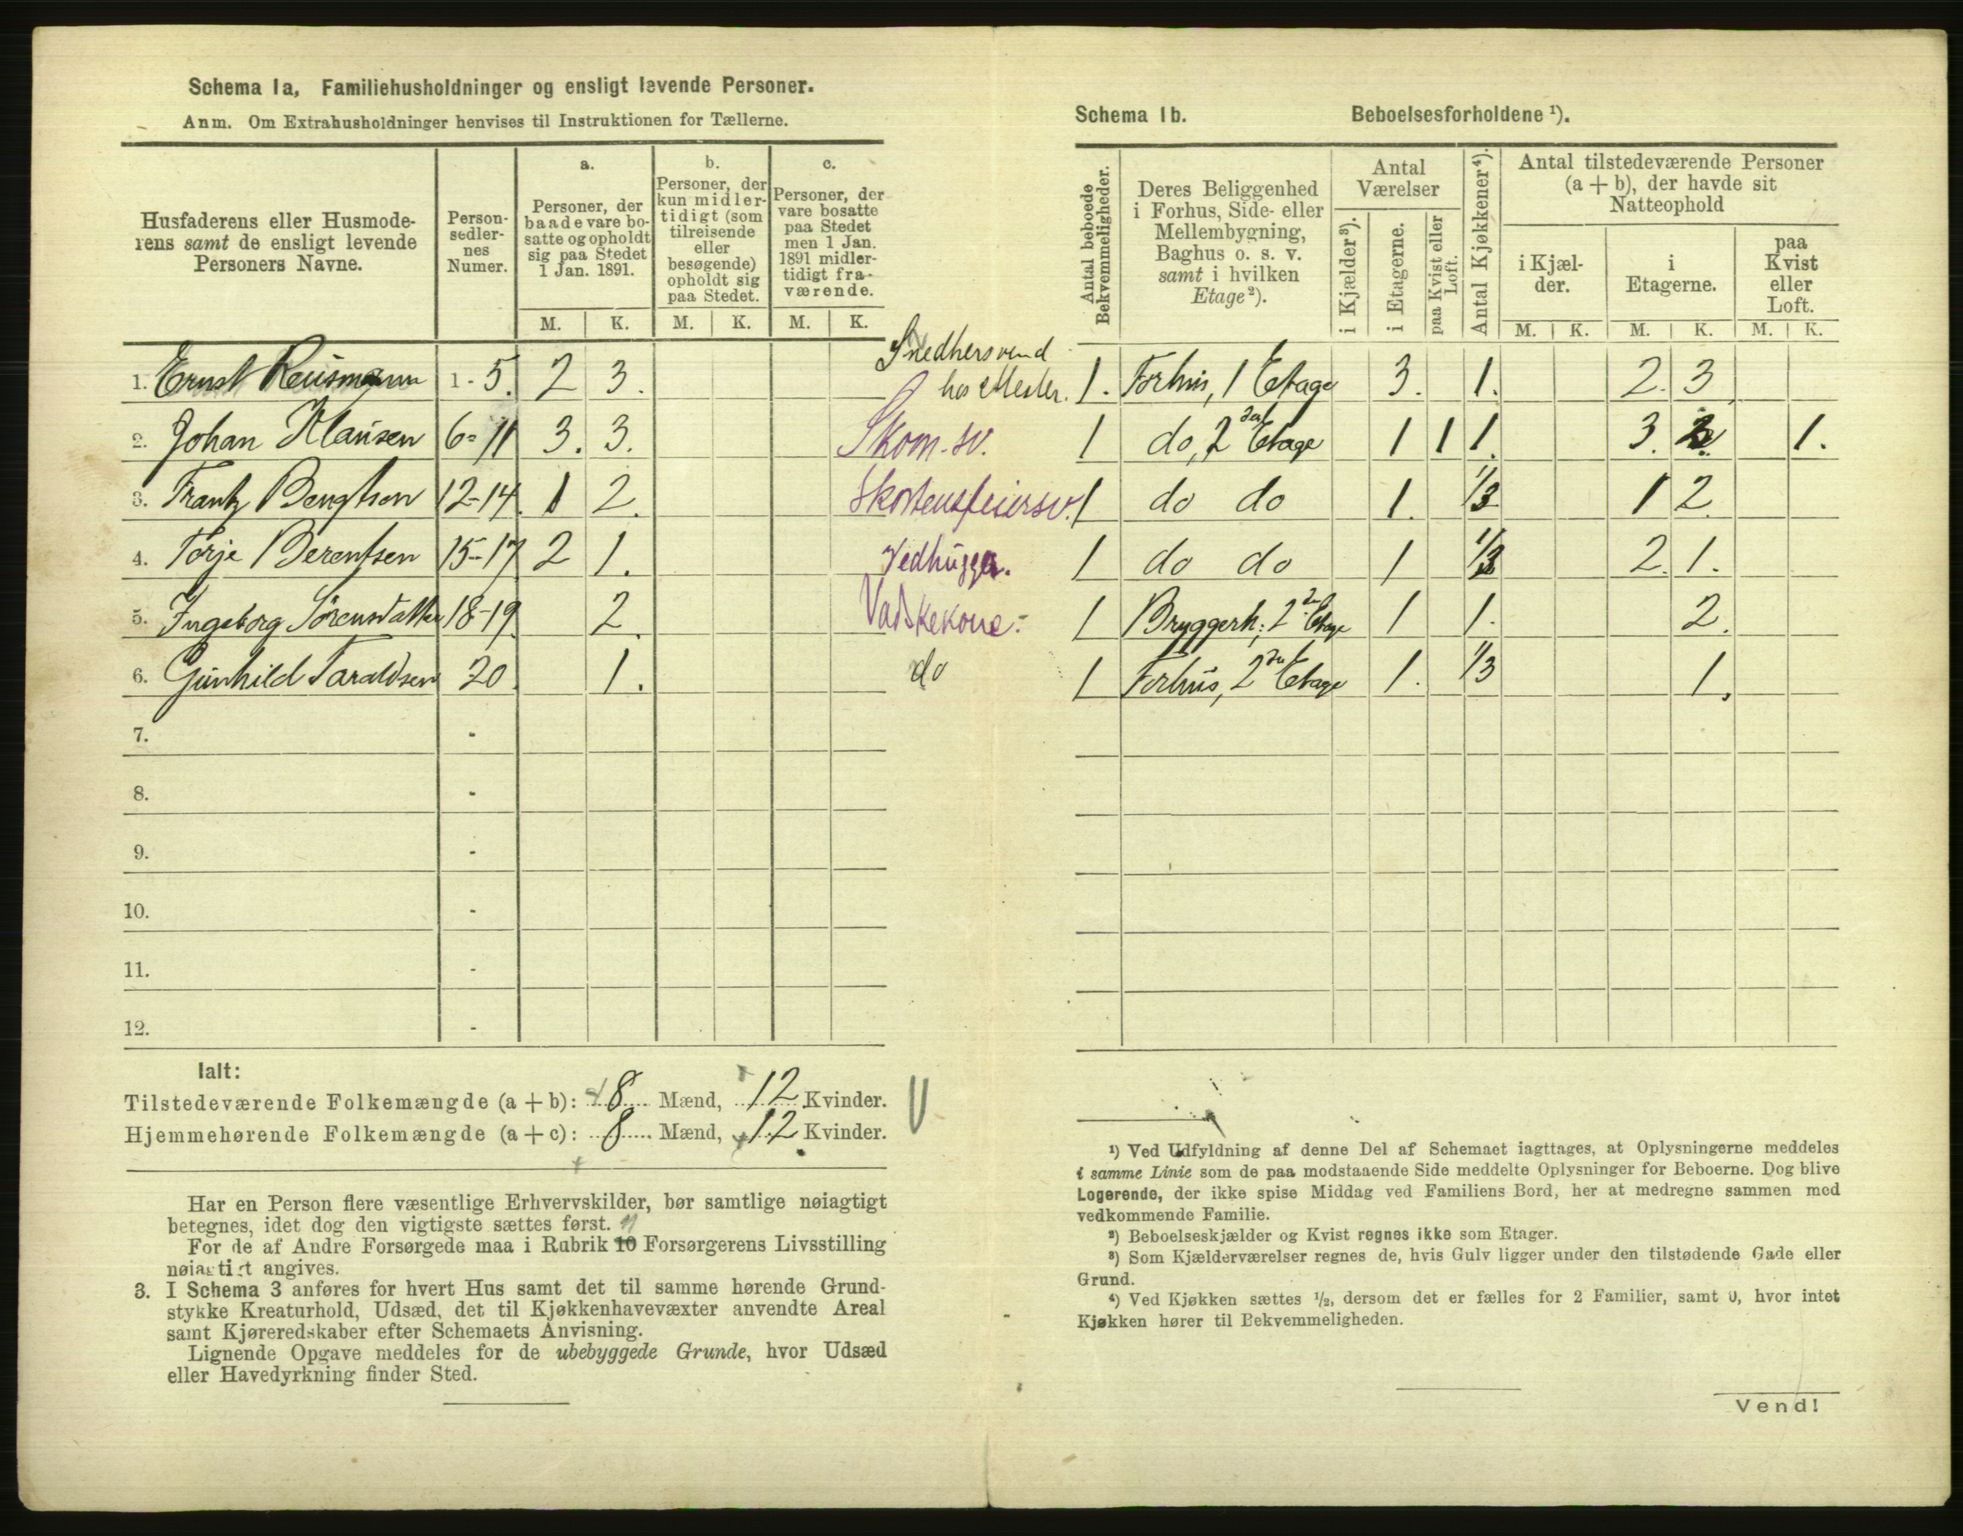 Schema 1a, Familiehusholdninger og ensligt levende Personer.
Anm. Om Extrahusholdninger henvises til Instruktionen for Tællerne.
Husfaderens eller Husmode-
rens samt de ensligt levende
Personers Navne.
Person-
sedler-
nes
Numer.
a.
Personer, der
baade vare bo-
satte og opholdt
sig paa Stedet
1 Jan. 1891.
b.
Personer, der
kun midler-
tidigt (som
tilreisende
eller
besøgende)
opholdt sig
paa Stedet.
c.
Personer, der
vare bosatte
paa Stedet
men 1 Jan.
1891 midler-
tidigt fra-
værende.
M. K. M. K. M. K.
1. Ernst Reusmann 1-5. 2 3. Snedkersvend
hos Mester.
2. Johan Klausen 6-11 3. 3. Skom. sv.
3. Frantz Bengtson 12-14. 1 2. Skorstensfeiersv.
4. Torje Berentsen 15-17 2 1. Vedhugger.
5. Ingeborg Sörensdatter 18-19 2. Vadskekone
6. Gunhild Taraldsen 20 1. do
7. -
8. -
9. -
10. -
11. -
12. -
Ialt:
Tilstedeværende Folkemængde (a + b): 8 Mænd, 12 Kvinder.
Hjemmehørende Folkemængde (a + c): 8 Mænd, 12 Kvinder.
Har en Person flere væsentlige Erhvervskilder, bør samtlige nøiagtigt
betegnes, idet dog den vigtigste sættes først.
For de af Andre Forsørgede maa i Rubrik 10 Forsørgerens Livsstilling
nøiagtigt angives.
3. I Schema 3 anføres for hvert Hus samt det til samme hørende Grund-
stykke Kreaturhold, Udsæd, det til Kjøkkenhavevæxter anvendte Areal
samt Kjøreredskaber efter Schemaets Anvisning.
Lignende Opgave meddeles for de ubebyggede Grunde, hvor Udsæd
eller Havedyrkning finder Sted.
Schema 1b. Beboelsesforholdene ¹).
Antal beboede
Bekvemmeligheder.
Deres Beliggenhed
i Forhus, Side- eller
Mellembygning,
Baghus o. s. v.
samt i hvilken
Etage ²).
Antal
Værelser
i Kjælder ³).
i Etagerne.
paa Kvist eller
Loft.
Antal Kjøkkener ⁴).
Antal tilstedeværende Personer
(a + b), der havde sit
Natteophold
i Kjæl-
der.
i
Etagerne.
paa
Kvist
eller
Loft.
M. K. M. K. M. K.
1. Forhus, 1 Etage 3. 1. 2. 3
1 do, 2den Etage 1 1 1. 3. 2. 1.
1 do do 1. 1/3 1 2.
1 do do 1 1/3 2. 1.
1 Bryggerh., 2den Etage 1 1. 2.
1 Forhus, 2den Etage 1. 1/3 1.
¹) Ved Udfyldning af denne Del af Schemaet iagttages, at Oplysningerne meddeles
i samme Linie som de paa modstaaende Side meddelte Oplysninger for Beboerne. Dog blive
Logerende, der ikke spise Middag ved Familiens Bord, her at medregne sammen med
vedkommende Familie.
²) Beboelseskjælder og Kvist regnes ikke som Etager.
³) Som Kjælderværelser regnes de, hvis Gulv ligger under den tilstødende Gade eller
Grund.
⁴) Ved Kjøkken sættes ½, dersom det er fælles for 2 Familier, samt 0, hvor intet
Kjøkken hører til Bekvemmeligheden.
Vend!